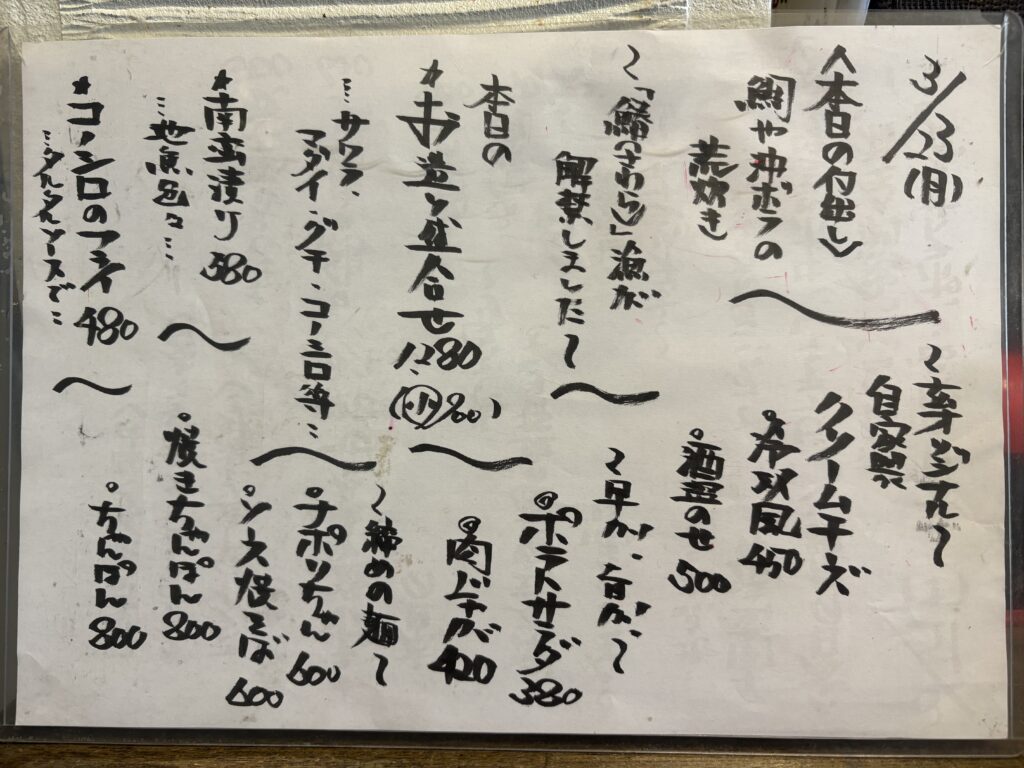 3/23(月)
〈本日の付出し〉
鯛や沖ボラの
荒炊き
〜「鰆(さわら)」漁が
解禁しました〜
本日の
★お造り盛合せ 1,280
(小 980)
…サワラ、
マダイ・グチ・コノシロ等…
★南蛮漬け 580
…地魚色々…
★コノシロのフライ 480
…タルタルソースで…
自家製
クリームチーズ
450
。酒盗のせ 500
〜早か、旨か〜
。ポテトサラダ 380
。肉じゃが 420
〜締めの麺〜
。ナポリちゃん 600
。ソース焼そば 600
。焼きちゃんぽん 800
。ちゃんぽん 800